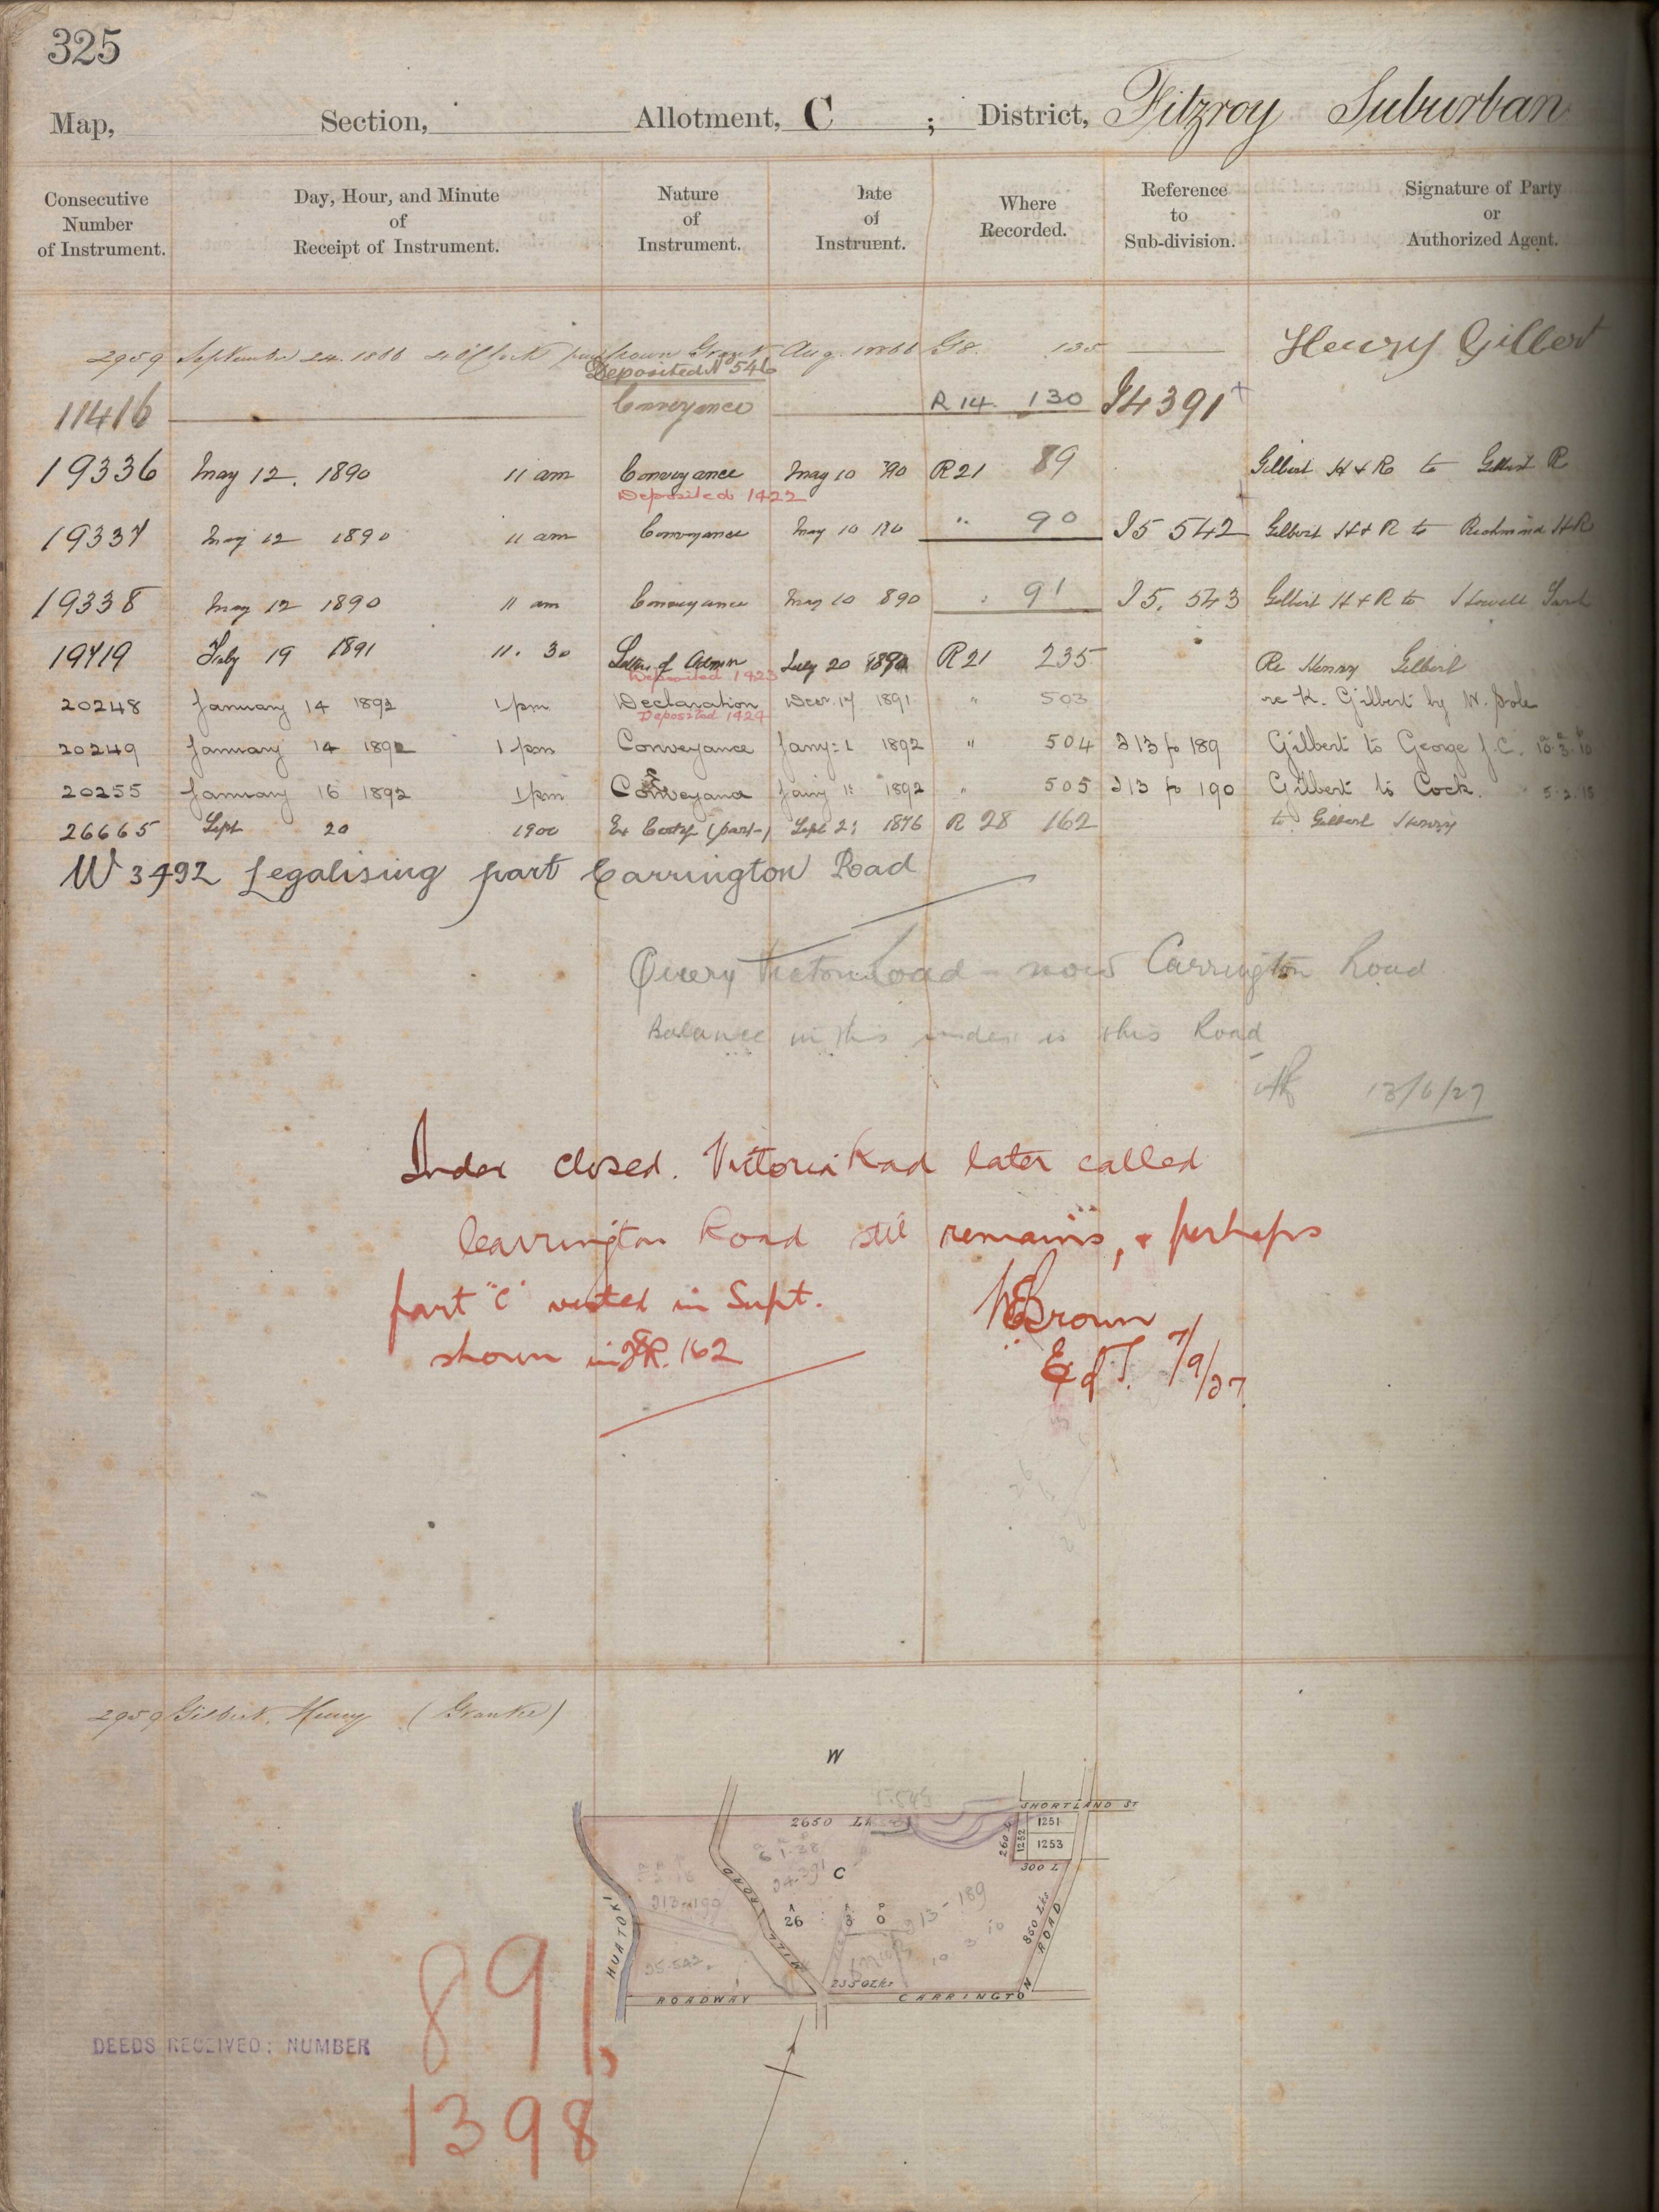 325
Map, Section, Allotment, C ; District, Fitzroy Suburban
Consecutive Number of Instrument.
Day, Hour, and Minute of Receipt of Instrument.
Nature of Instrument.
Date of Instrument.
Where Recorded.
Reference to Sub-division.
Signature of Party or Authorized Agent.
2959 September 24. 1866 4 o'clock Crown Grant Aug. 1866 G8. 135 Henry Gilbert
Deposited No 546
11416 Conveyance R 14. 130 I4 391
19336 May 12. 1890 11 am Conveyance May 10 90 R21 89 Gilbert H & R to Gilbert R
Deposited 1422
19337 May 12 1890 11 am Conveyance May 10 " 90 I5 542 Gilbert H & R to Richmond H R
19338 May 12 1890 11 am Conveyance May 10 890 " 91 I5. 543 Gilbert H & R to Howell
19719 July 19 1891 11. 30 Letters of Admon July 20 R21 235 Re Henry Gilbert
Deposited 1423
20248 January 14 1892 1 pm Declaration Decr. 17 1891 " 503 re K. Gilbert by W. Pole
Deposited 1424
20249 January 14 1892 1 pm Conveyance Jany: 1 1892 " 504 I13 fo 189 Gilbert to George J. C. 10. 3. 10
20255 January 16 1892 1 pm Conveyance Jany 1: 1892 " 505 I13 fo 190 Gilbert to Cock.
26665 Sept 20 1900 (part) Sept 21 1876 R 28 162 to Gilbert Henry
W 3492 Legalising part Carrington Road
Query Victoria Road - now Carrington Road
Balance in this index is this Road
13/6/27
Index closed. Victoria Road later called
Carrington Road still remains, & perhaps
part "C" vested in Supt.
shown in R. 162
Brown
7/9/27.
2959 Gilbert, Henry (Grantee)
W
SHORTLAND ST
2650
1251
1252
1253
260
300 L
C
I4-391
A R P
26 : 3 0
I13-189
10 3 10
I13-190
I5.542
850 Lks
ROAD
MILL ROAD
HUATOKI
2350 Lks
ROADWAY
CARRINGTON
DEEDS RECEIVED: NUMBER
891,
1398